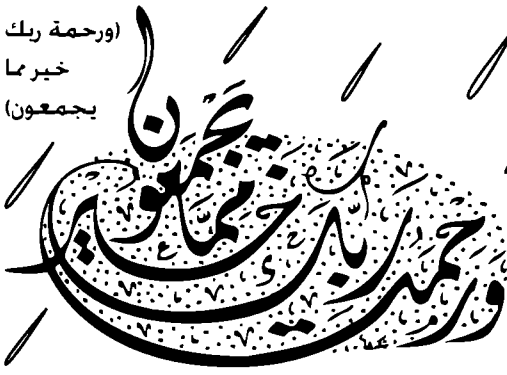 (ورحمة ربك
خير مما
يجمعون)
ورحمت ربك خير مما يجمعون